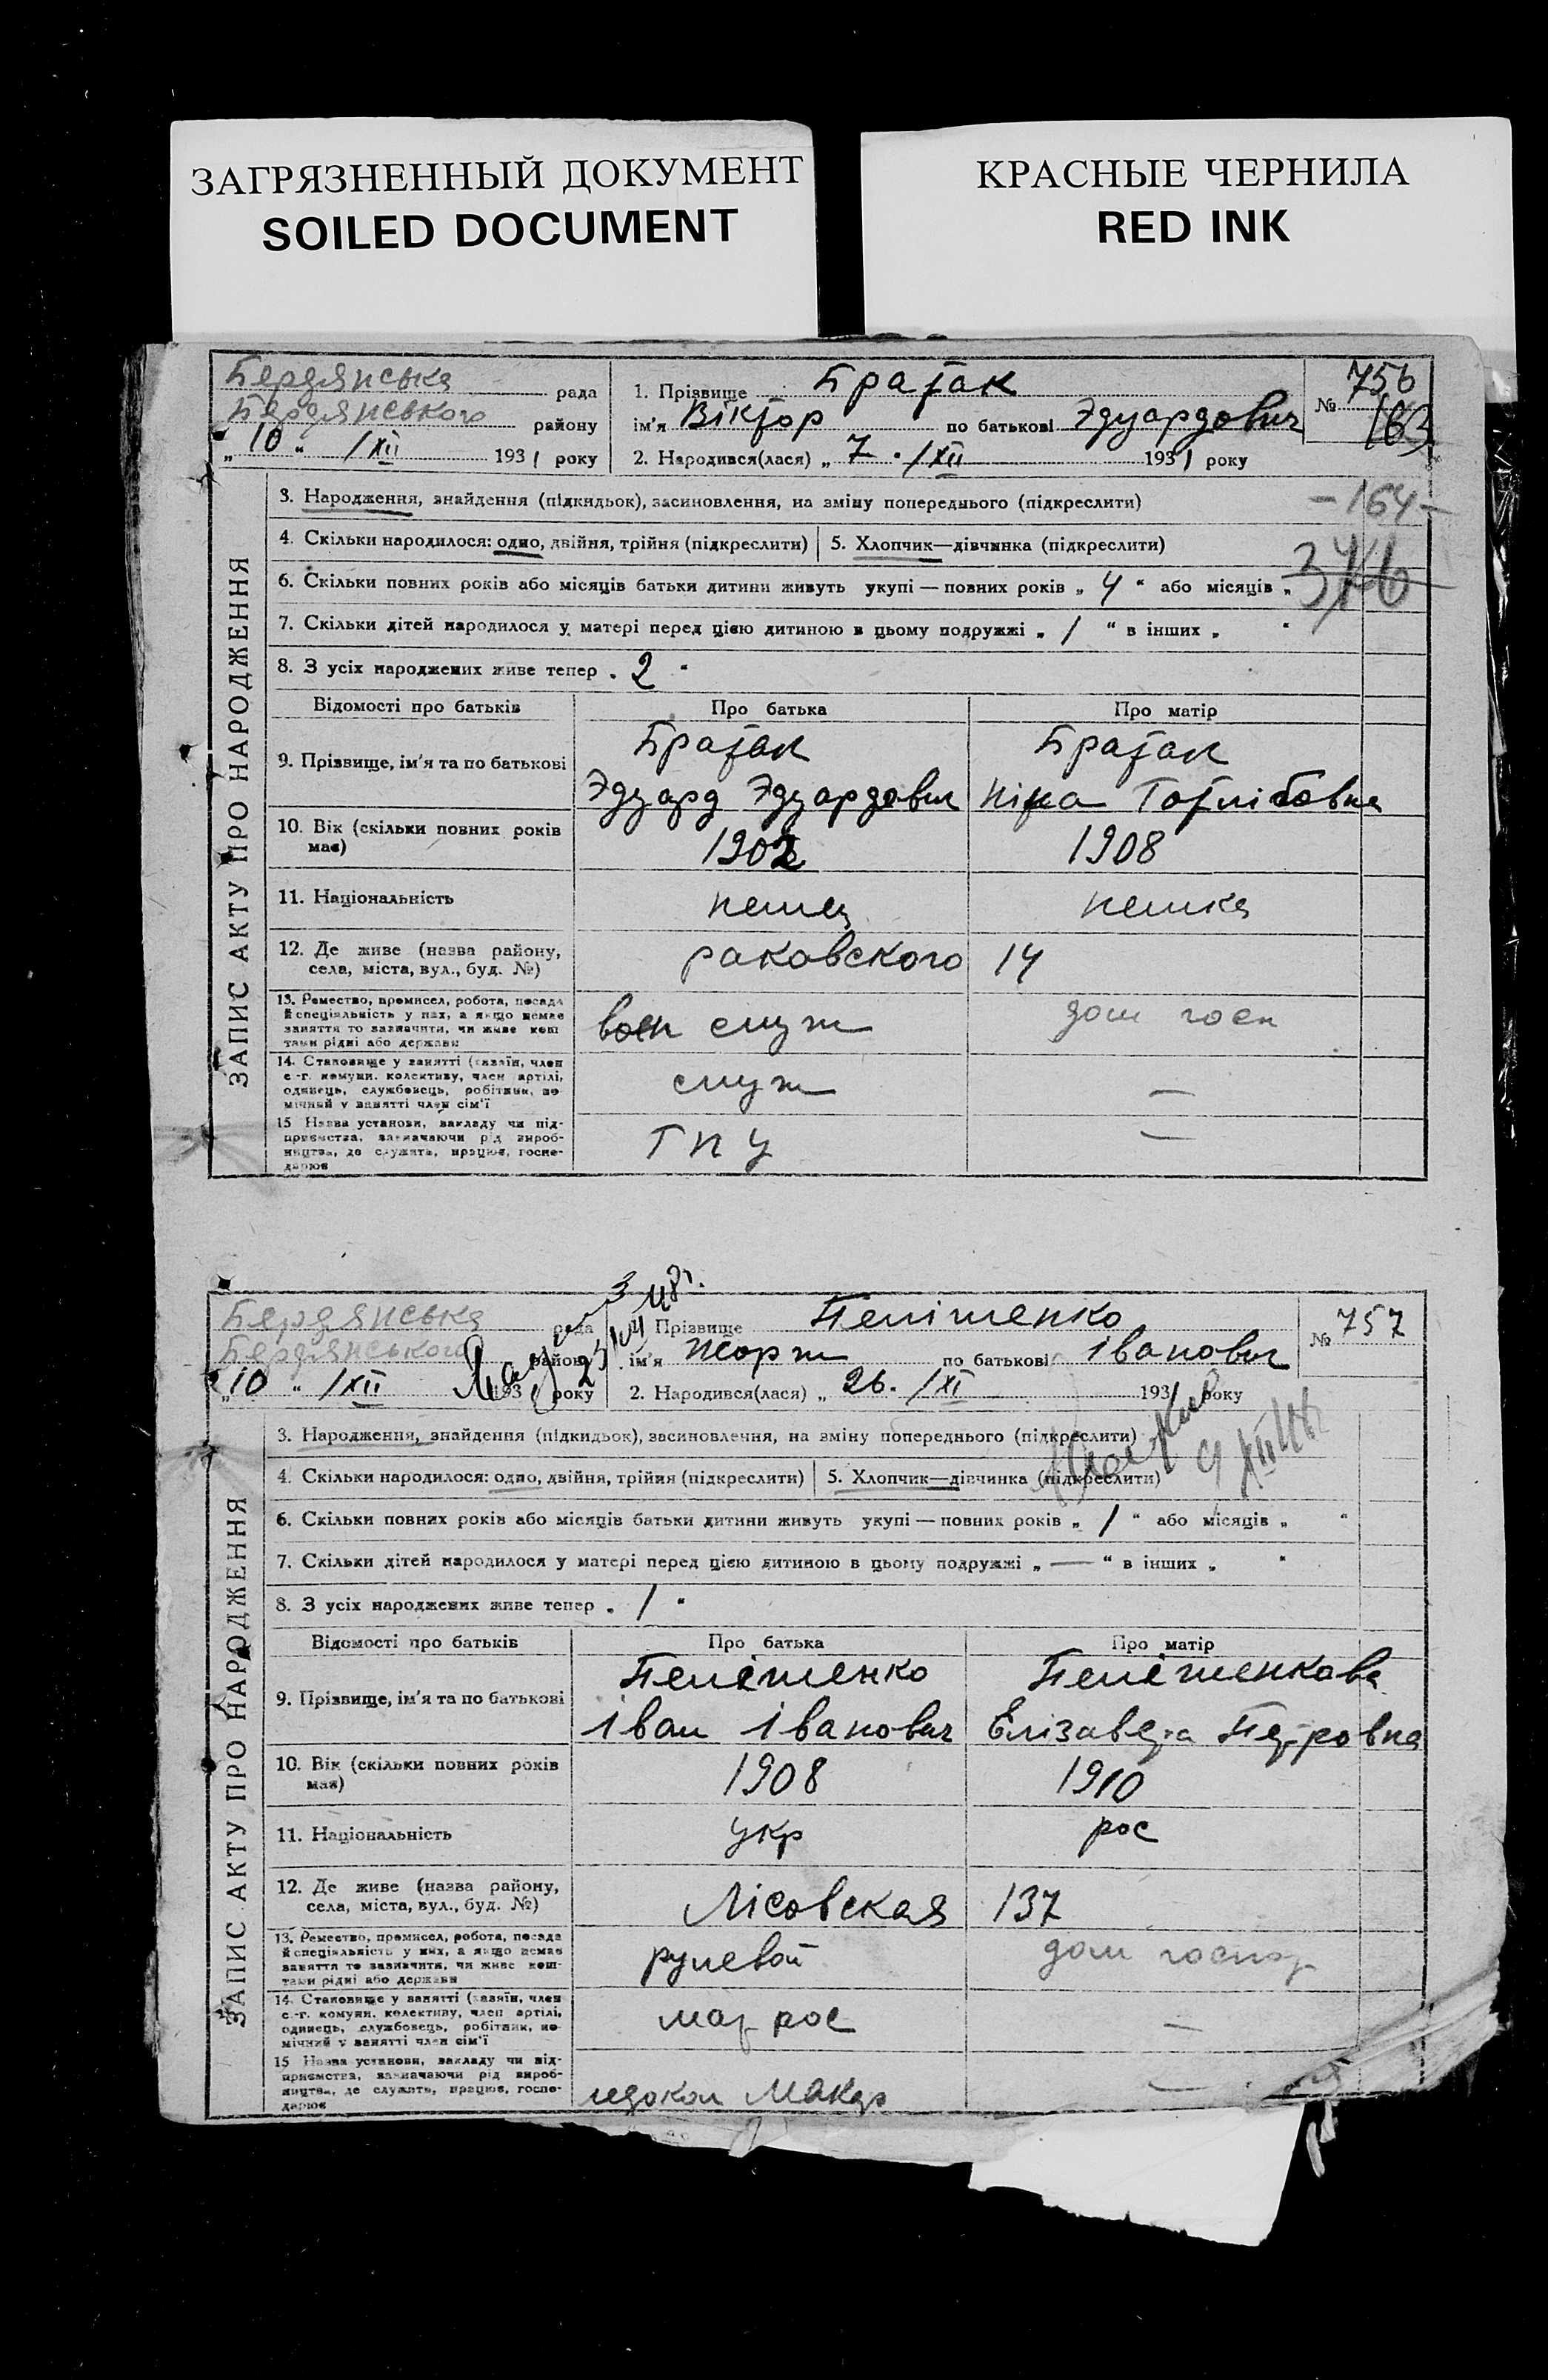 ЗАГРЯЗНЕННЫЙ ДОКУМЕНТ
SOILED DOCUMENT
КРАСНЫЕ ЧЕРНИЛА
RED INK
Бердянська рада
Бердянського району
„10“ /XII 1931 року
1. Прізвище Братак
ім'я Віктор по батькові Эдуардович
2. Народився(лася) „7“ /XII 1931 року
№ 756
163
- 164 -
ЗАПИС АКТУ ПРО НАРОДЖЕННЯ
3. Народження, знайдення (підкидьок), засиновлення, на зміну попереднього (підкреслити)
4. Скільки народилося: одно, двійня, трійня (підкреслити) 5. Хлопчик—дівчинка (підкреслити)
6. Скільки повних років або місяців батьки дитини живуть укупі — повних років „4“ або місяців „
7. Скільки дітей народилося у матері перед цією дитиною в цьому подружжі „1“ в інших „ “
8. З усіх народжених живе тепер „2“
Відомості про батьків Про батька Про матір
9. Прізвище, ім'я та по батькові
Братак Братак
Эдуард Эдуардович Ніна Готлібовна
10. Вік (скільки повних років має) 1902 1908
11. Національність немец немка
12. Де живе (назва району,
села, міста, вул., буд. №)
раковского 14
13. Ремество, промисел, робота, посада
й спеціяльність у них, а якщо немає
заняття то зазначити, чи живе кош
тами рідні або держави
воен служ дом госп
14. Становище у занятті (хазяїн, член
с.-г. комуни, колективу, член артілі,
одинець, службовець, робітник, по
мічний у занятті член сім'ї
служ —
15 Назва установи, закладу чи під-
приємства, зазначаючи рід вироб-
ництва, де служить, працює, госпо-
дарює
ГПУ —
Бердянська рада
Бердянського району
„10“ /XII 1931 року
1. Прізвище Пелішенко
ім'я Жорж по батькові Іванович
2. Народився(лася) „26. /XI 1931 року
№ 757
ЗАПИС АКТУ ПРО НАРОДЖЕННЯ
3. Народження, знайдення (підкидьок), засиновлення, на зміну попереднього (підкреслити)
4. Скільки народилося: одно, двійня, трійня (підкреслити) 5. Хлопчик—дівчинка (підкреслити)
6. Скільки повних років або місяців батьки дитини живуть укупі — повних років „1“ або місяців „ “
7. Скільки дітей народилося у матері перед цією дитиною в цьому подружжі „—“ в інших „ “
8. З усіх народжених живе тепер „1“
Відомості про батьків Про батька Про матір
9. Прізвище, ім'я та по батькові
Пелішенко Пелішенкова
Іван Іванович Елізавета Петровна
10. Вік (скільки повних років має) 1908 1910
11. Національність укр рос
12. Де живе (назва району,
села, міста, вул., буд. №)
Лісовская 137
13. Ремество, промисел, робота, посада
й спеціяльність у них, а якщо немає
заняття то зазначити, чи живе кош-
тами рідні або держави
рулевой дом госпор
14. Становище у занятті (хазяїн, член
с.-г. комуни, колективу, член артілі,
одинець, службовець, робітник, по
мічний у занятті член сім'ї
матрос —
15 Назва установи, закладу чи під-
приємства, зазначаючи рід вироб-
ництва, де служить, працює, госпо-
дарює
ледокол —